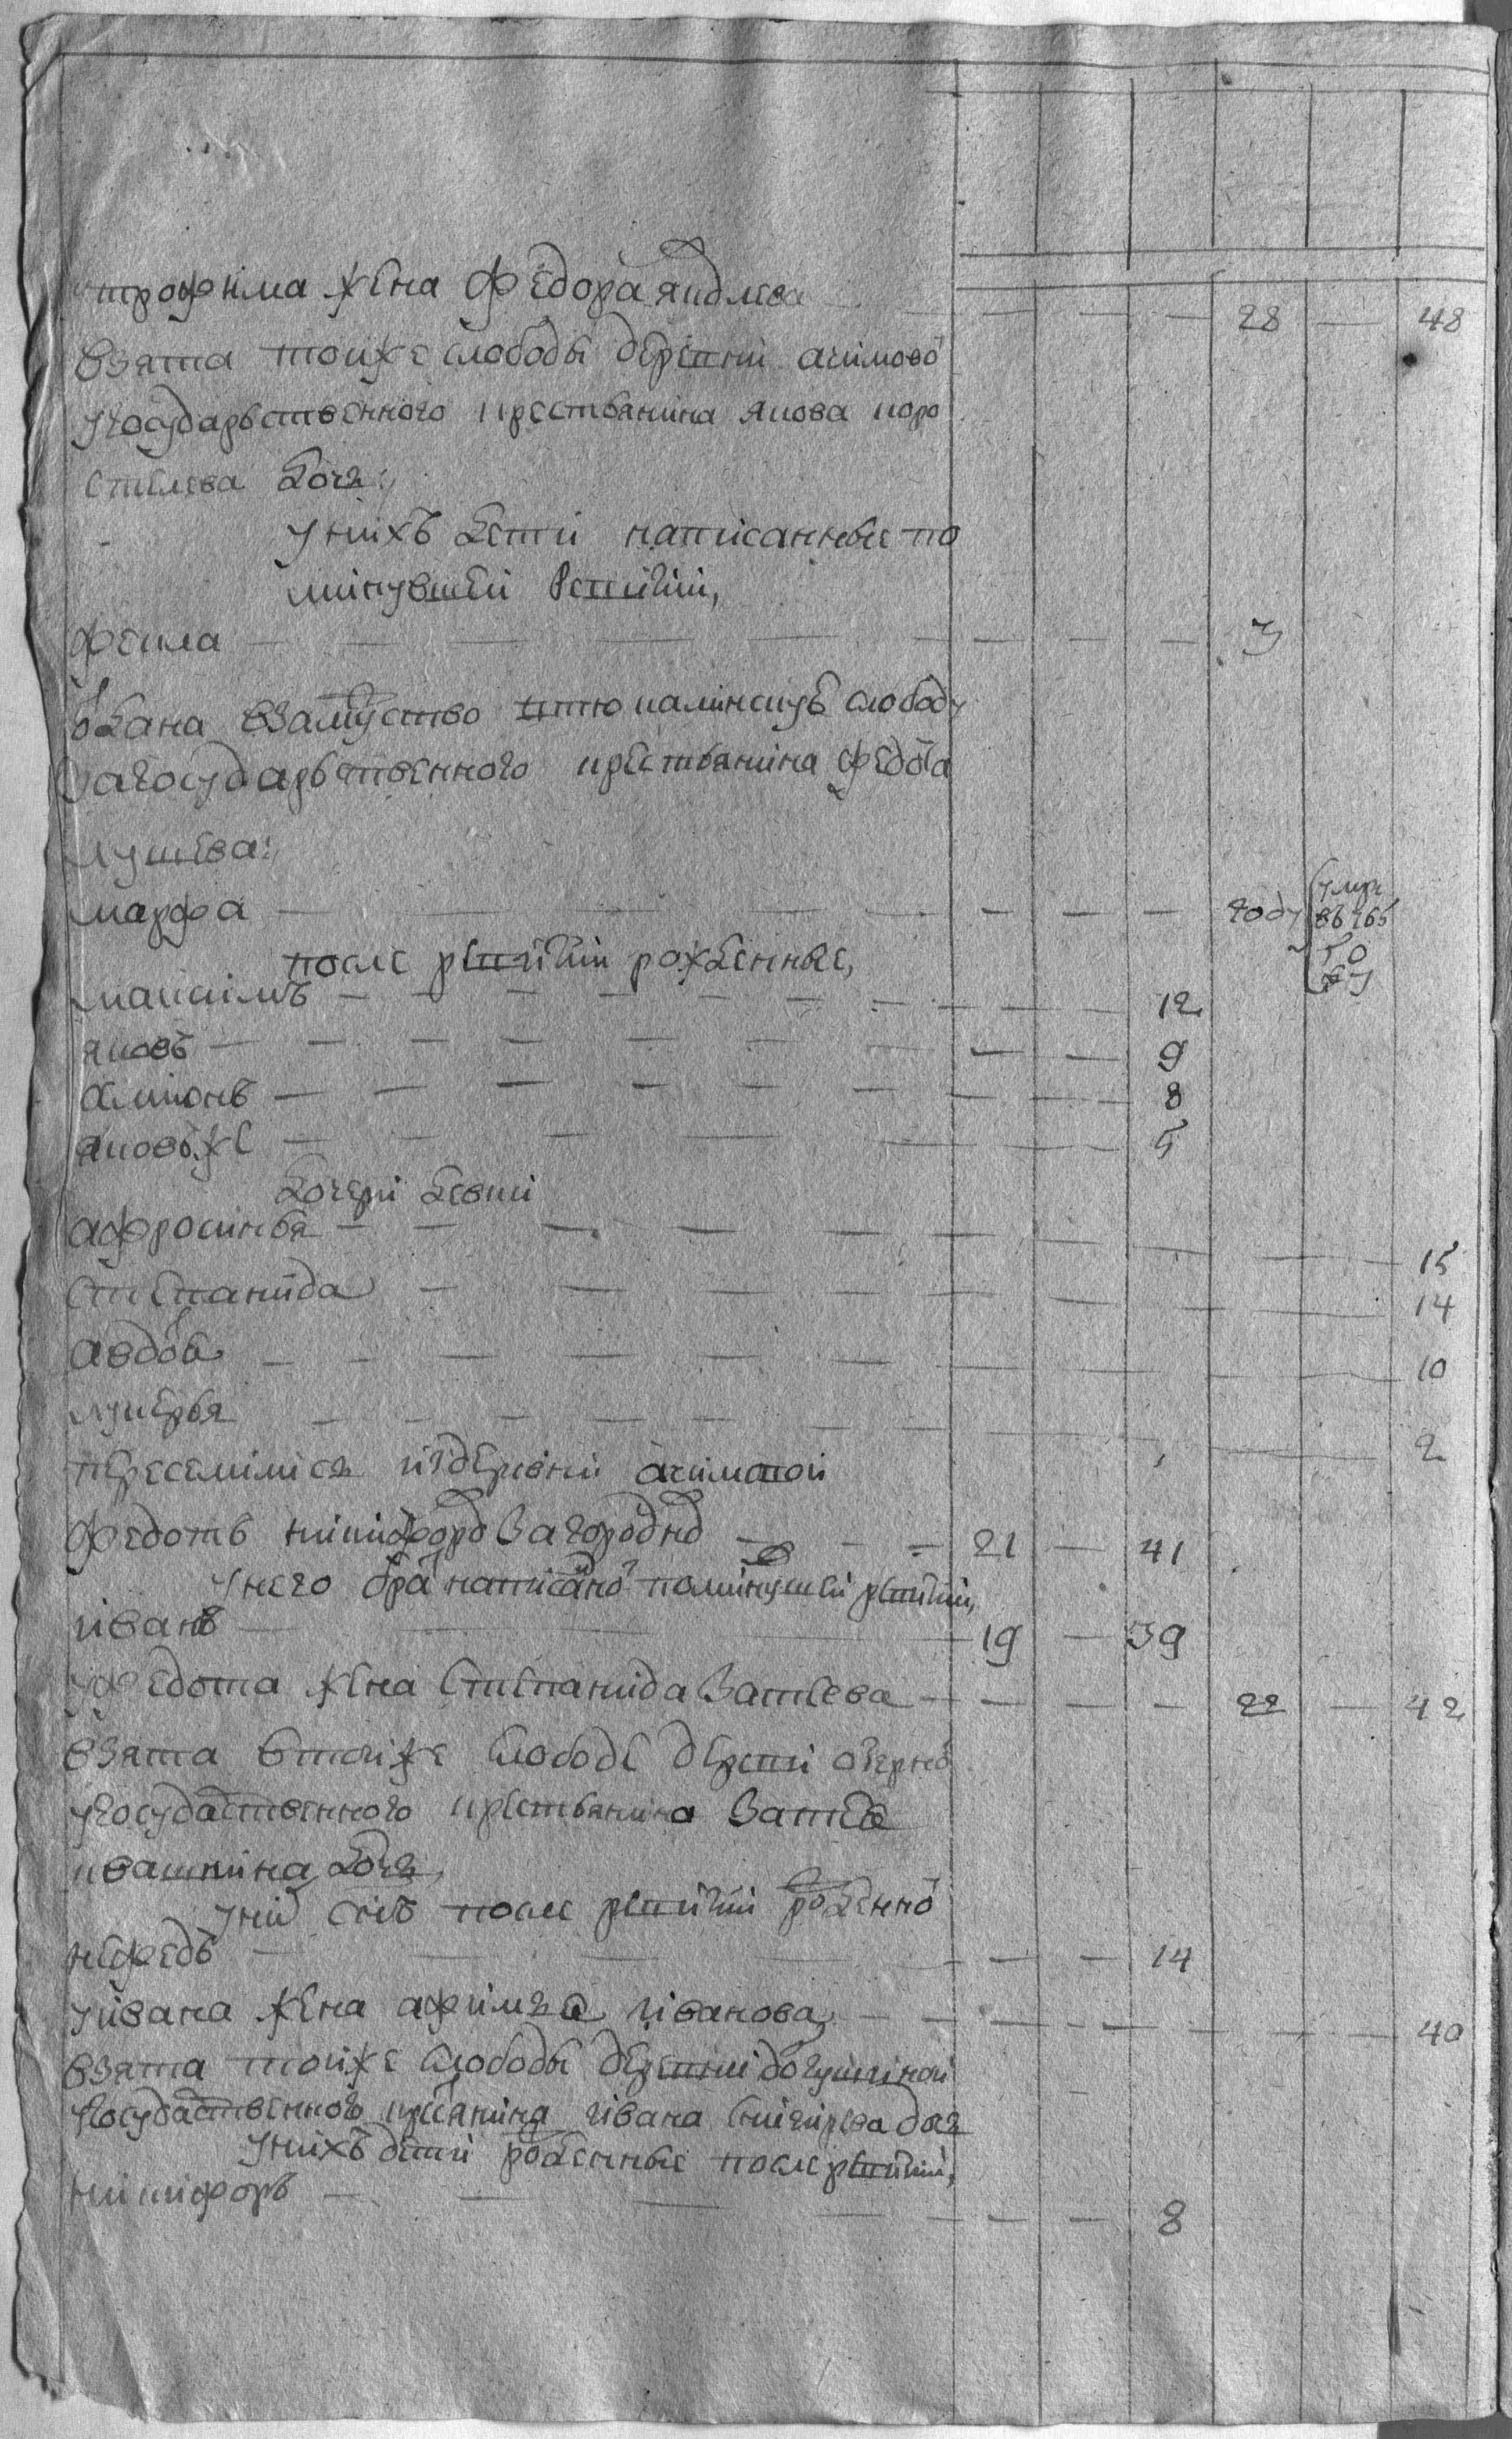 утрофима жена федора яковлева — 28 — 48
взята тойже слободы деревни акимово
угосударьственного крестьянина якова коро
стелева дочь;
унихъ дети написанные по
минувшей ревизии,
фекла — 3
одана взамужство слободу
загосударьственного крестьянина федота
лушева:
марфа — году умре въ 765
после ревизии рожденные,
максимъ — 12
яковъ — 9
симионъ — 8
яковъже — 5
дочери девки
афросинья — 15
степанида — 14
авдотья — 10
лукерья — 2
переселился издеревни акимовой
федотъ никифоровъ загороднов — 21 — 41
унего братъ написанной поминувшей ревизии,
иванъ — 19 — 39
уфедота жена степанида — 22 — 42
взята втойже слободе деревни озерной
угосударственного крестьянина
ивашкина дочь,
унихъ снъ после ревизии рожденной
нефедъ — 14
уивана жена афимья иванова — 40
взята тойже слободы деревни
угосударственного крестьянина ивана снигирева дочь
унихъ дети рожденные после ревизии,
никифоръ — 8